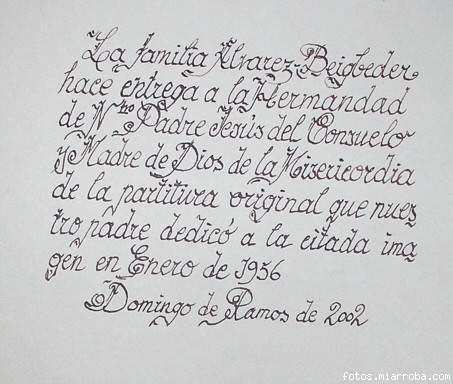 La familia Álvarez-Beigbeder
hace entrega a la Hermandad
de Ntro Padre Jesús del Consuelo
y Madre de Dios de la Misericordia
de la partitura original que nues
tro padre dedicó a la citada ima
gen en Enero de 1956
Domingo de Ramos de 2002
fotos.miarroba.com